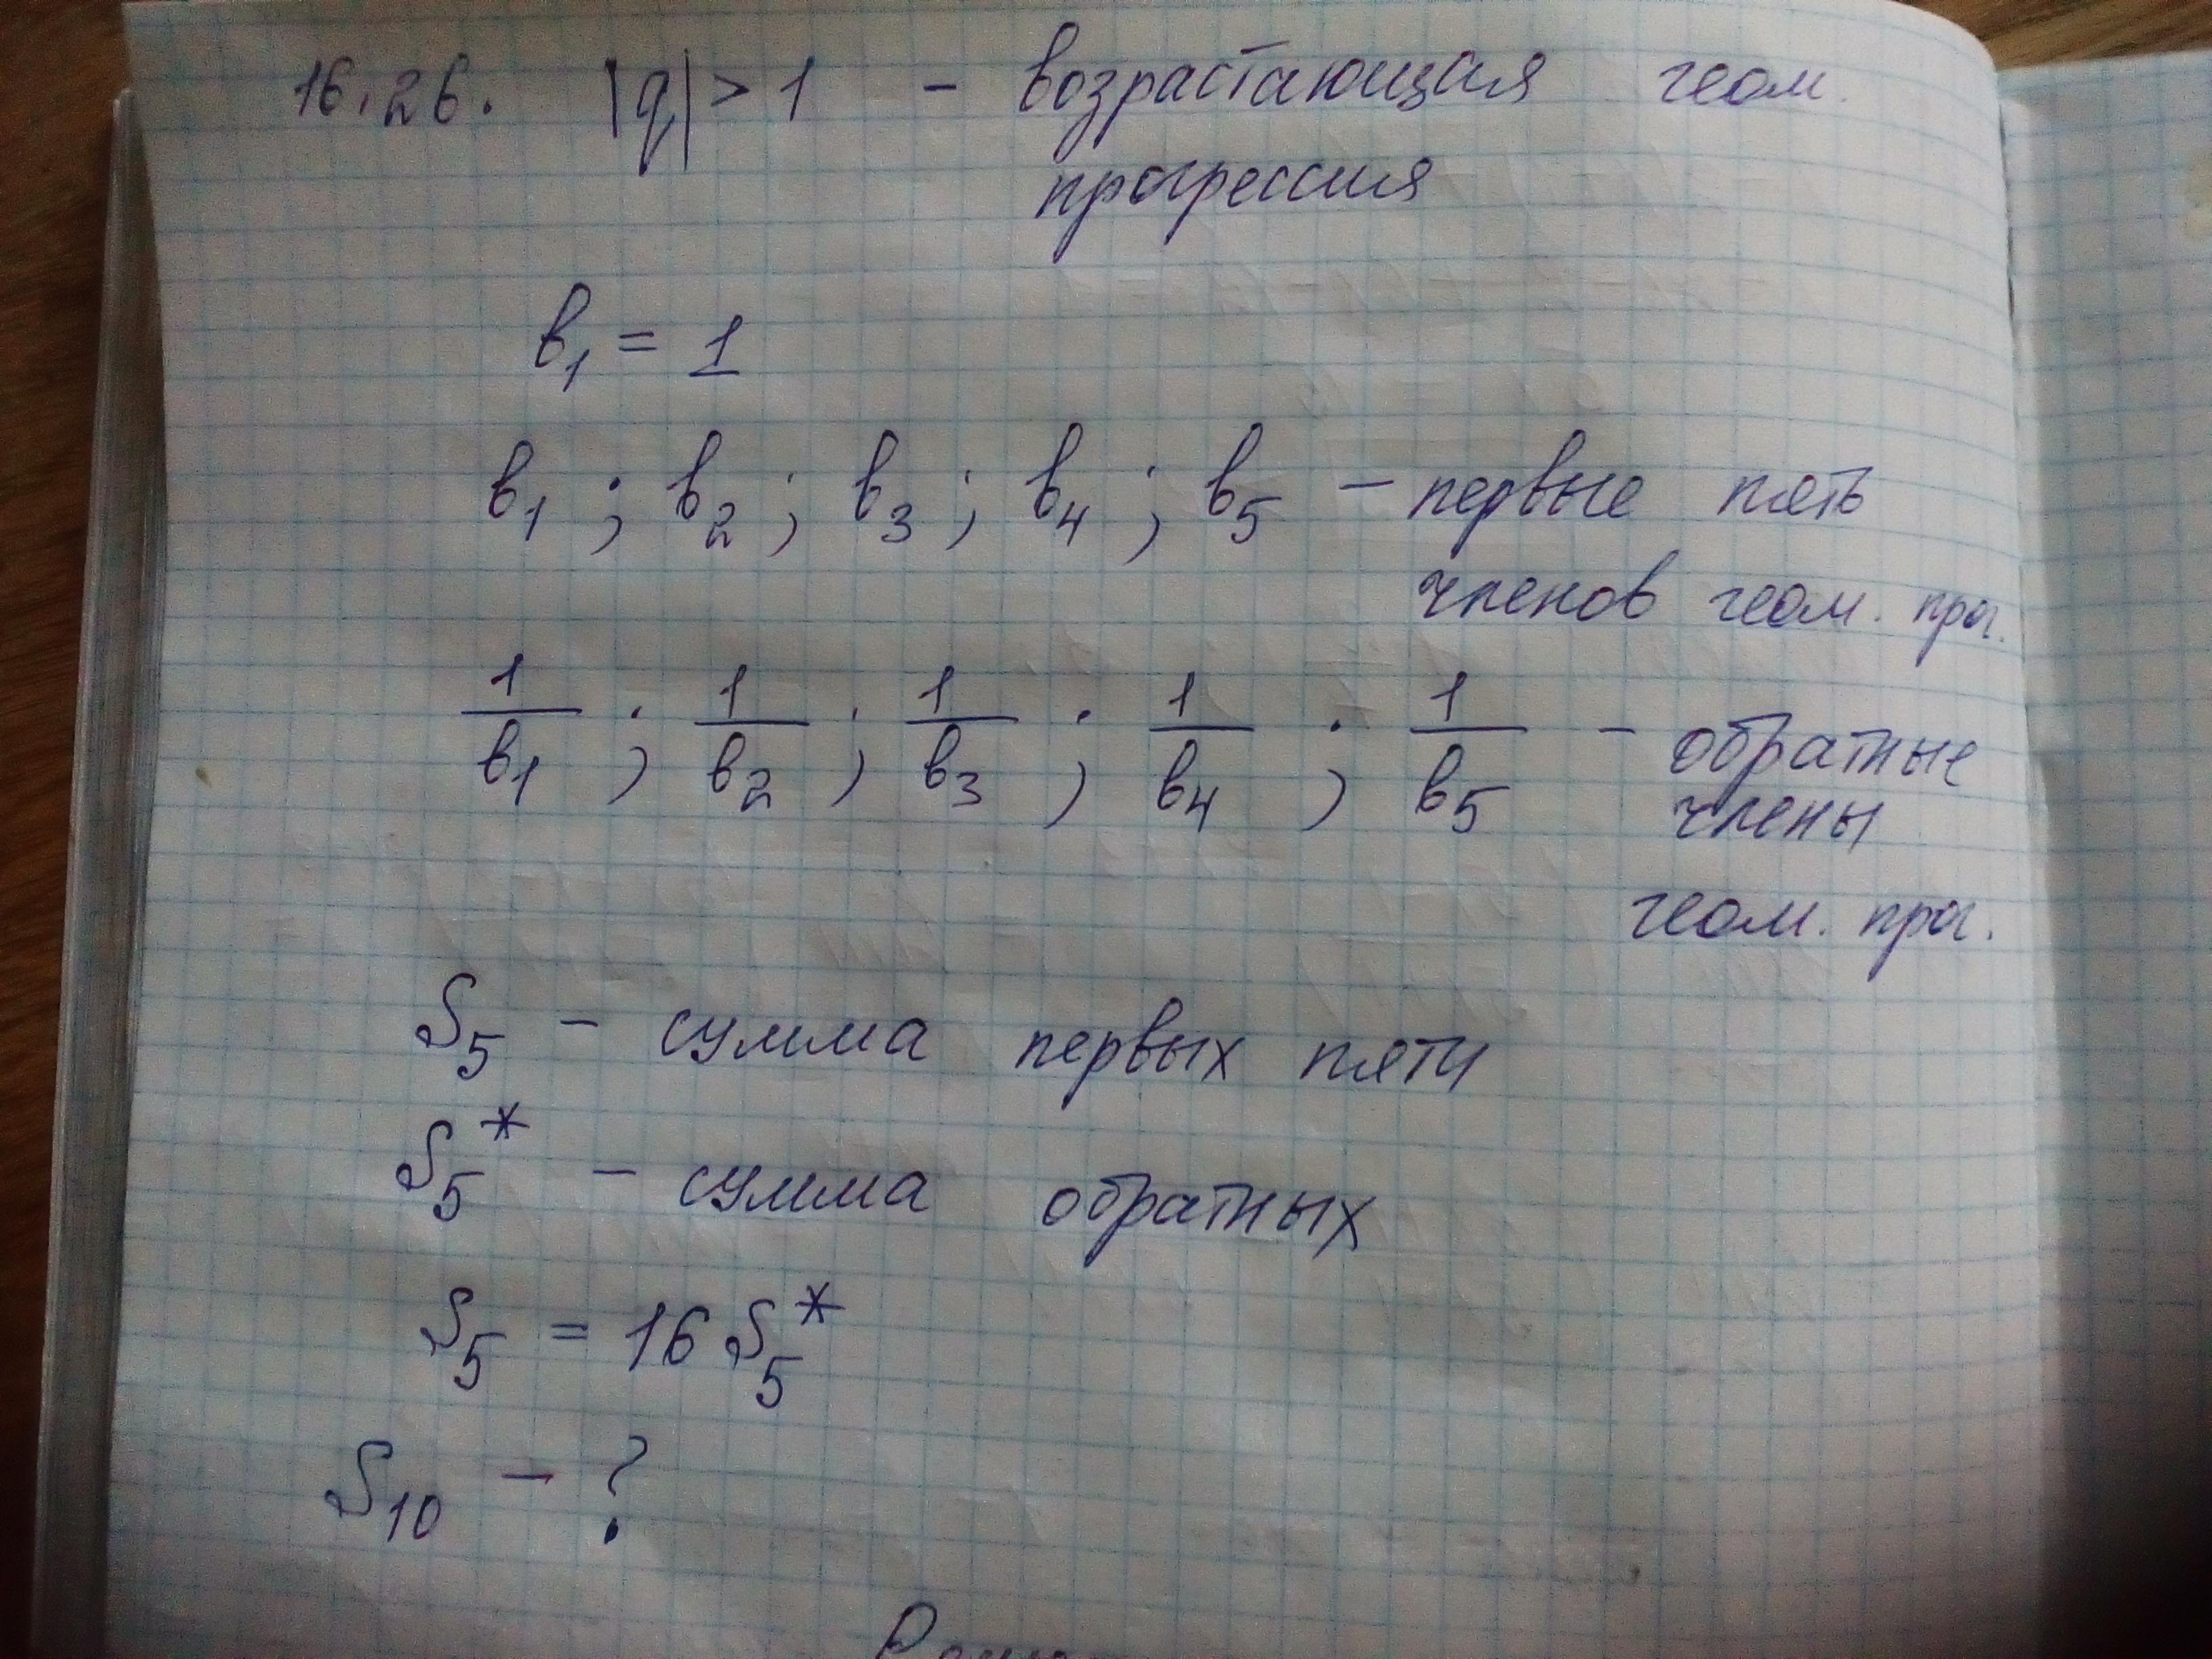 16.26. |q| > 1 – возрастающая геом.
прогрессия
в₁ = 1
в₁ ; в₂ ; в₃ ; в₄ ; в₅ – первые пять
членов геом. прог.
1/в₁ ; 1/в₂ ; 1/в₃ ; 1/в₄ ; 1/в₅ – обратные
члены
геом. прог.
S₅ – сумма первых пяти
S₅* – сумма обратных
S₅ = 16 S₅*
S₁₀ – ?